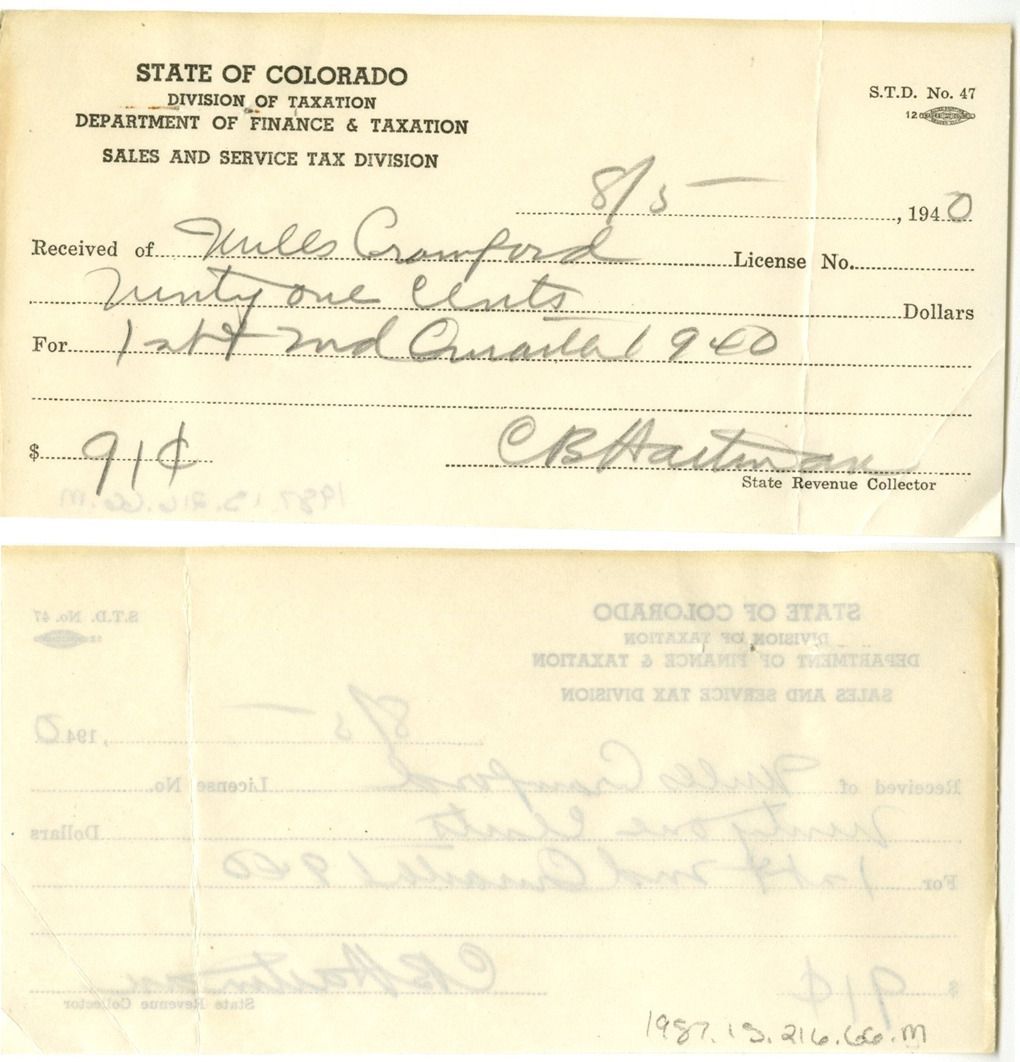 STATE OF COLORADO
DIVISION OF TAXATION
DEPARTMENT OF FINANCE & TAXATION
SALES AND SERVICE TAX DIVISION
S.T.D. No. 47
8/5 —, 1940
Received of Mills Crawford License No.
Ninty one Cents Dollars
For 1st & 2nd Quarter 1940
$ 91¢
CB Hartman
State Revenue Collector
1987.15.216.66.M